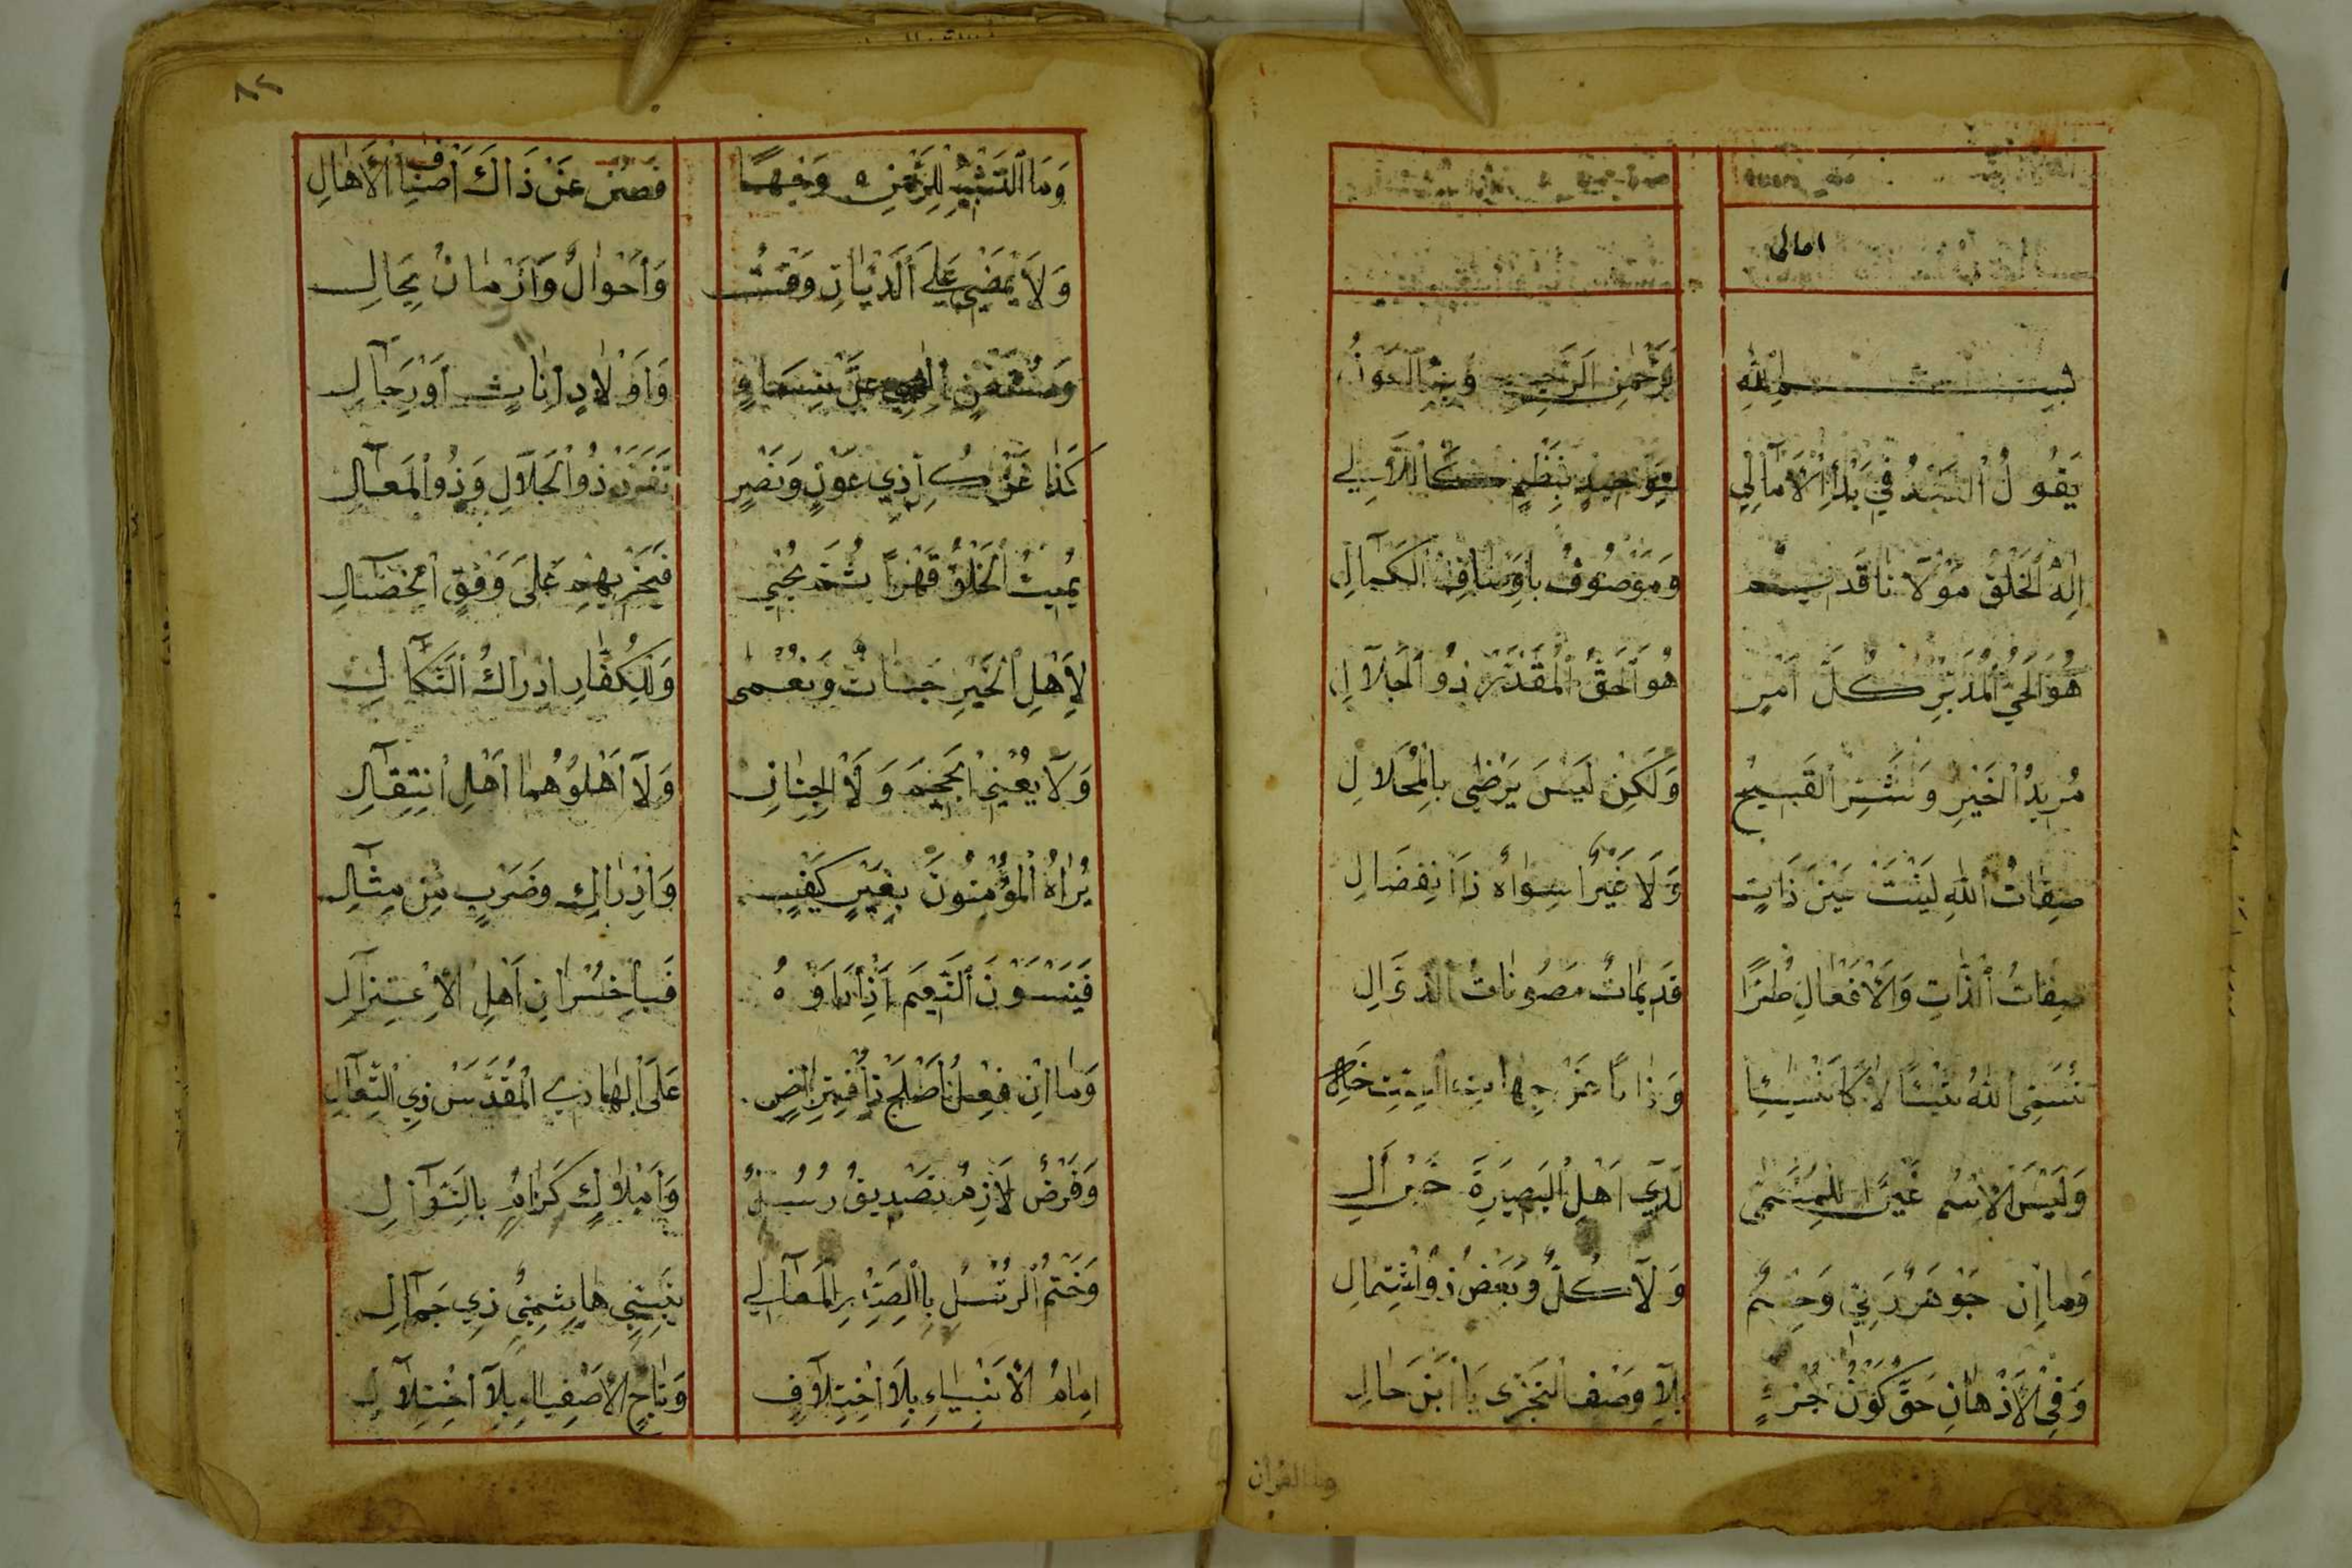 امالى
بِسْمِ اللهِ الرَّحْمٰنِ الرَّحِيمِ وَبِهِ الْعَوْنُ
يَقُولُ الْعَبْدُ فِي بَدْأِ الْأَمَالِي لِتَوْحِيدٍ بِنَظْمٍ كَاللَّآلِي
اِلٰهُ الْخَلْقِ مَوْلَانَا قَدِيمٌ وَمَوْصُوفٌ بِاَوْصَافِ الْكَمَالِ
هُوَ الْحَيُّ الْمُدَبِّرُ كُلَّ اَمْرٍ هُوَ الْحَقُّ الْمُقَدِّرُ ذُو الْجَلَالِ
مُرِيدُ الْخَيْرِ وَالشَّرِّ الْقَبِيحِ وَلٰكِنْ لَيْسَ يَرْضٰى بِالْمُحَالِ
صِفَاتُ اللهِ لَيْسَتْ عَيْنَ ذَاتٍ وَلَا غَيْرًا سِوَاهُ ذَا انْفِصَالِ
صِفَاتُ الذَّاتِ وَالْاَفْعَالِ طُرًّا قَدِيمَاتٌ مَصُونَاتُ الزَّوَالِ
نُسَمِّى اللهَ شَيْئًا لَا كَاشْيَا وَذَاتًا عَنْ جِهَاتِ السِّتِّ خَالِ
وَلَيْسَ الْاِسْمُ غَيْرًا لِلْمُسَمّٰى لَدٰى اَهْلِ الْبَصِيرَةِ خَيْرِ آلِ
وَمَا اِنْ جَوْهَرٌ رَبِّي وَجِسْمٌ وَلَا كُلٌّ وَبَعْضٌ ذُو اشْتِمَالِ
وَفِي الْاَذْهَانِ حَقٌّ كَوْنُ جُزْءٍ بِلَا وَصْفِ التَّجَزِّى يَا ابْنَ خَالِ
وما القرآن
٨٢
وَمَا التَّشْبِيهُ لِلرَّحْمٰنِ وَجْهًا فَصُنْ عَنْ ذَاكَ اَصْنَافَ الْاَهَالِ
وَلَا يَمْضِي عَلَى الدَّيَّانِ وَقْتٌ وَاَحْوَالٌ وَاَزْمَانٌ بِحَالِ
وَمُسْتَغْنٍ اِلٰهِي عَنْ نِسَاءٍ وَاَوْلَادٍ اِنَاثٍ اَوْ رِجَالِ
كَذَا عَنْ كُلِّ ذِي عَوْنٍ وَنَصْرٍ تَفَرَّدَ ذُو الْجَلَالِ وَذُو الْمَعَالِ
يُمِيتُ الْخَلْقَ قَهْرًا ثُمَّ يُحْيِي فَيَجْزِيهِمْ عَلَى وَفْقِ الْخِصَالِ
لِأَهْلِ الْخَيْرِ جَنَّاتٌ وَنُعْمٰى وَلِلْكُفَّارِ اِدْرَاكُ النَّكَالِ
وَلَا يُفْنَى الْجَحِيمُ وَلَا الْجِنَانِ وَلَا اَهْلُوهُمَا اَهْلِ انْتِقَالِ
يُرَاهُ الْمُؤْمِنُونَ بِغَيْرِ كَيْفٍ وَاِدْرَاكٍ وَضَرْبٍ مِنْ مِثَالِ
فَيَنْسَوْنَ النَّعِيمَ اِذَا رَاَوْهُ فَيَا خُسْرَانَ اَهْلِ الْاِعْتِزَالِ
وَمَا اِنْ فِعْلُ اَصْلَحَ ذَا افْتِرَاضٍ عَلَى الْهَادِي الْمُقَدَّسِ ذِي التَّعَالِ
وَفَرْضٌ لَازِمٌ تَصْدِيقُ رُسُلٍ وَاَمْلَاكٍ كِرَامٍ بِالنَّوَالِ
وَخَتْمُ الرُّسُلِ بِالصَّدْرِ الْمَعَالِي نَبِيٍّ هَاشِمِيٍّ ذِي جَمَالِ
اِمَامُ الْاَنْبِيَاءِ بِلَا اخْتِلَافٍ وَتَاجُ الْاَصْفِيَاءِ بِلَا اخْتِلَالِ